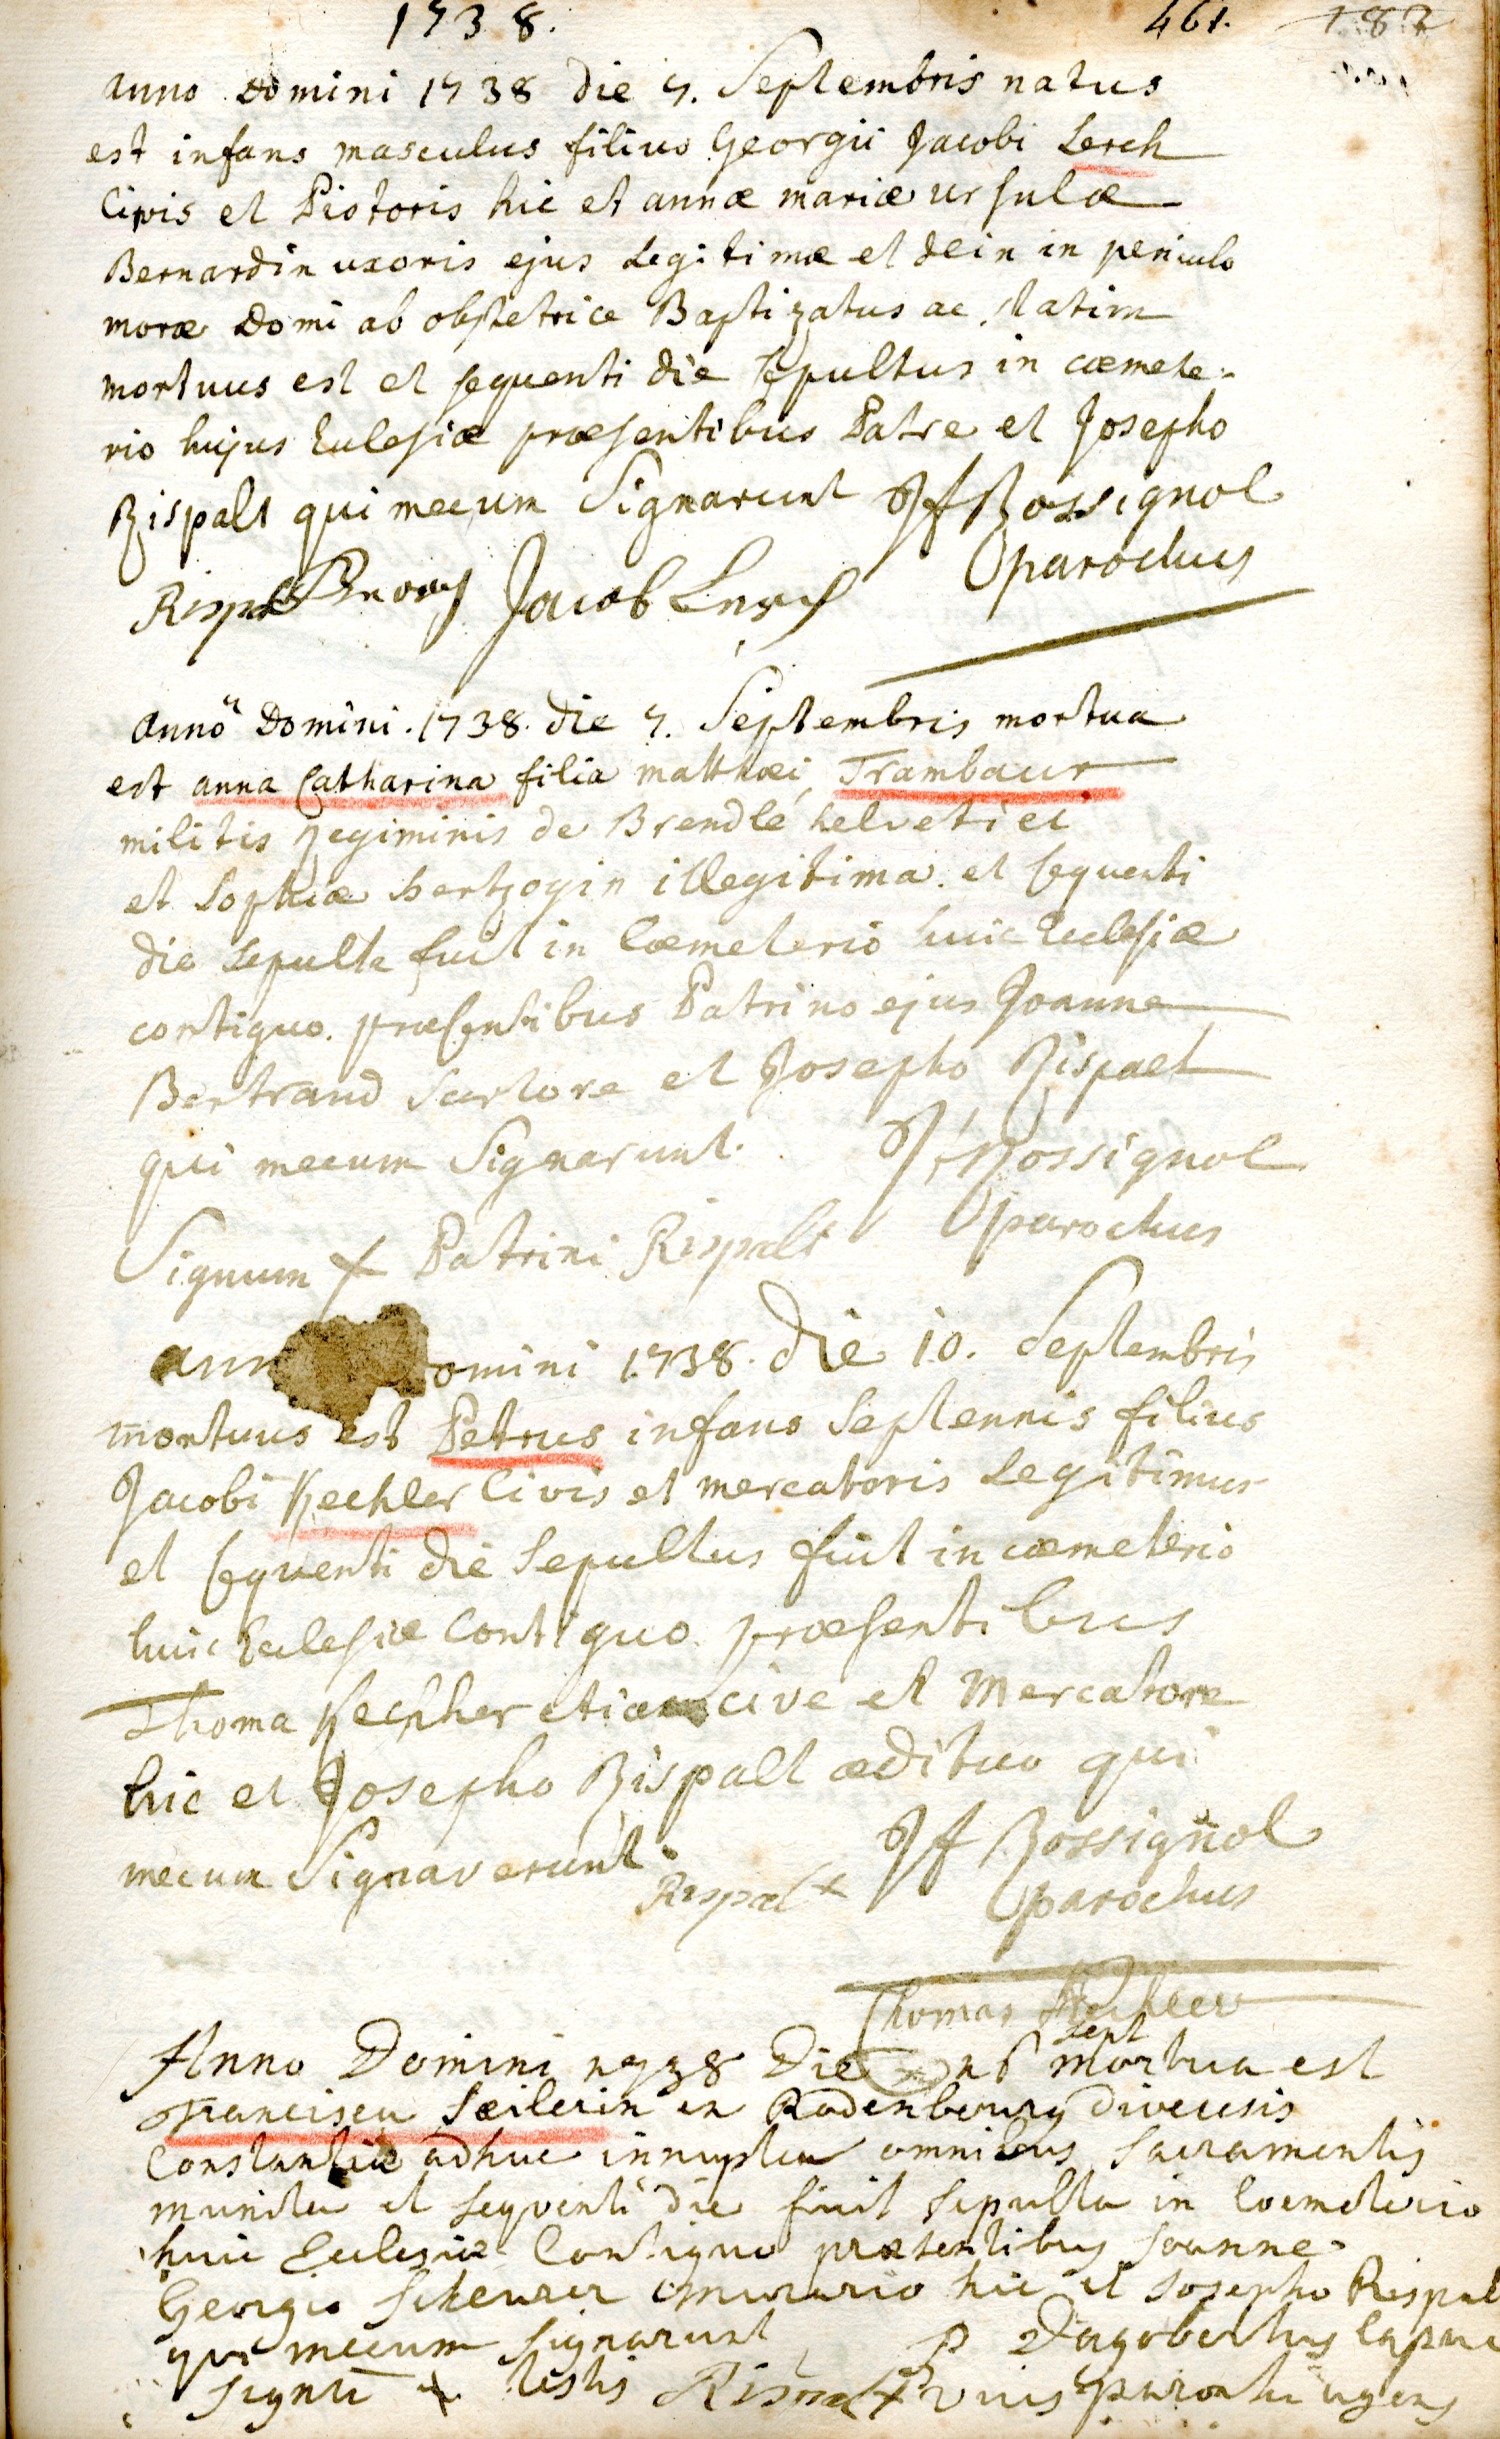 1738.
461. 187
Anno Domini 1738 die 7. Septembris natus
est infans masculus filius Georgii Jacobi Lerch
Civis et Pistoris hic et annæ mariæ ursulæ
Bernardin uxoris ejus Legitimæ et dein in periculo
moræ Domi ab obstetrice Baptizatus ac statim
mortuus est et sequenti die sepultus in cœmete-
rio hujus Eclesiæ præsentibus Patre et Josepho
Rispalt qui mecum Signarunt Jf Rossignol
parochus
Rispalt Jacob Lerch
Anno Domini. 1738. die 7. Septembris mortua
est anna Catharina filia matthæi Trambaur
militis regiminis de Brendlé helvetici
et Sophiæ hertzogin illegitima. et sequenti
die sepulta fuit in Cœmeterio huic Eclesiæ
contiguo. præsentibus Patrino ejus Joanne
Bertrand Sartore et Josepho Rispalt
qui mecum Signarunt. Jf Rossignol
parochus
Signum + Patrini Rispalt
Ann omini 1738. die 10. Septembris
mortuus est Petrus infans Septennis filius
Jacobi Kechler Civis et mercatoris Legitimus
et sequenti die Sepultus fuit in cœmeterio
huic Eclesiæ Contiguo. præsentibus
Thoma Kechler etiam cive et Mercatore
hic et Josepho Rispalt ædituo qui
mecum Signaverunt. Jf Rossignol
Rispalt parochus
Thomas Kechler
Anno Domini 1738 Die 16 sept mortua est
Francisca Seilerin ex Rodenbourg diœcesis
Constantiæ adhuc innupta omnibus Sacramentis
munita et sequenti die fuit sepulta in Cœmeterio
huic Eclesiæ Contiguo præsentibus Joanne
Georgio Scheurer murario hic et Josepho Rispalt
qui mecum signarunt p Dagobertus Capuc
signu + testis Rispalt vices parochi agens